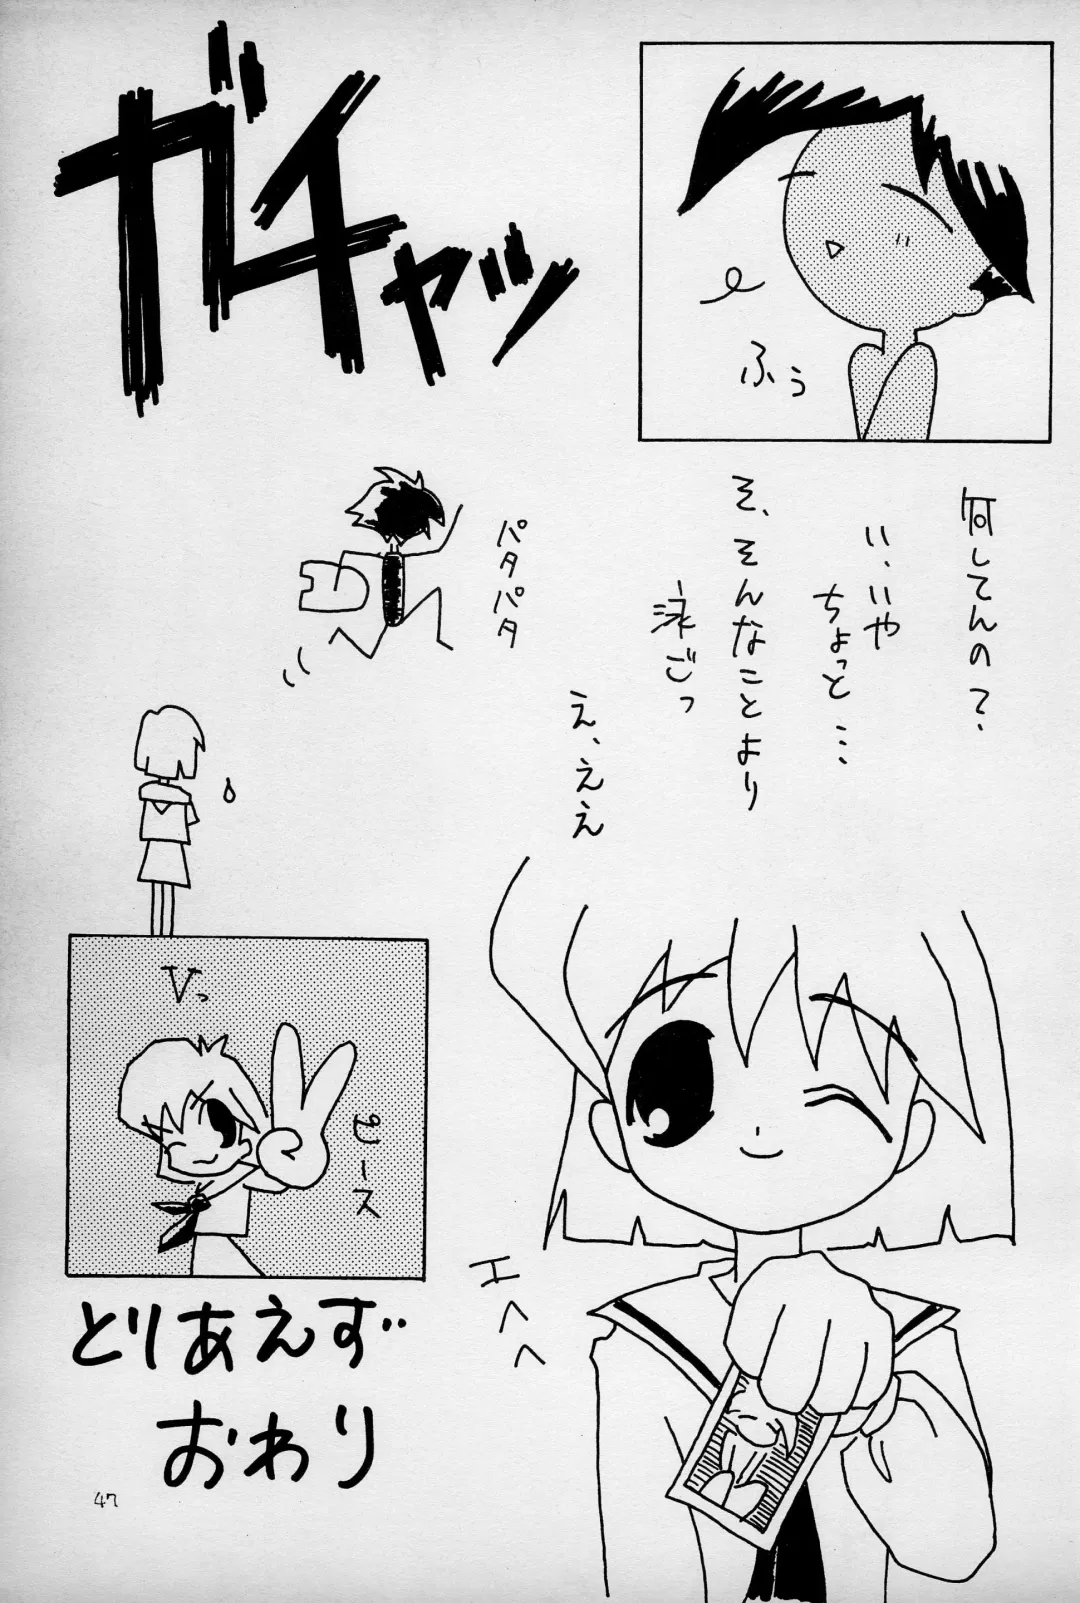 ふぅ
ガチャッ
何してんの?
い、いや
ちょっと…
そ、そんなことより
泳ごっ
え、ええ
パタパタ
Vっ
ピース
エヘヘ
とりあえず
おわり
47